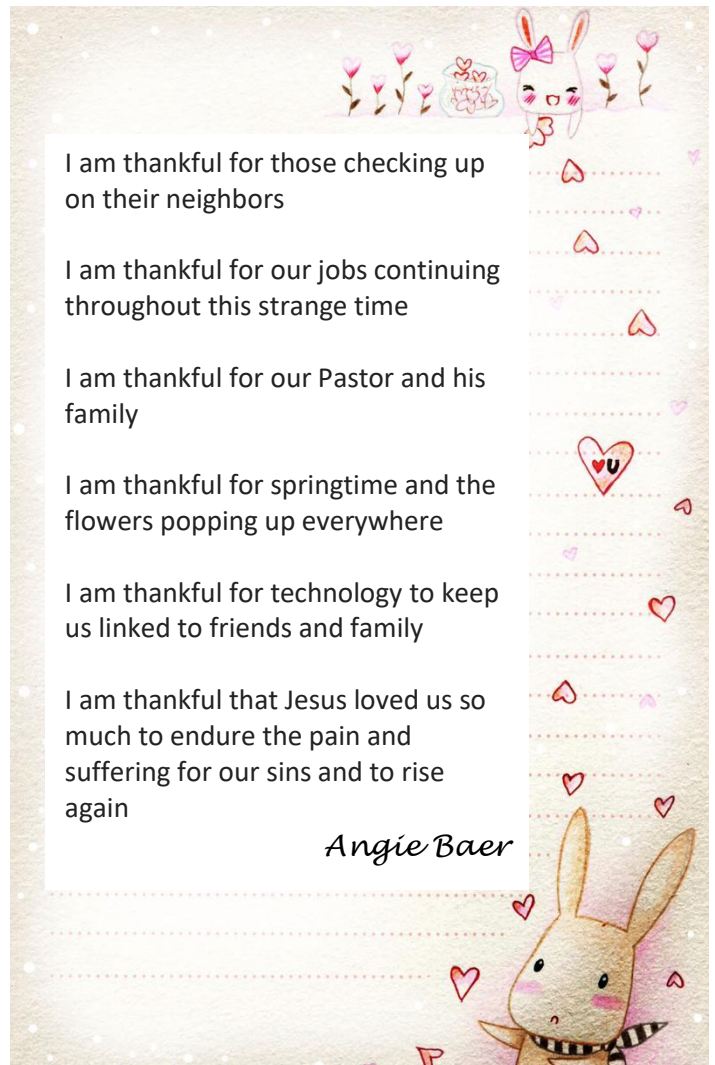 I am thankful for those checking up
on their neighbors
I am thankful for our jobs continuing
throughout this strange time
I am thankful for our Pastor and his
family
I am thankful for springtime and the
flowers popping up everywhere
I am thankful for technology to keep
us linked to friends and family
I am thankful that Jesus loved us so
much to endure the pain and
suffering for our sins and to rise
again
Angie Baer
♥U